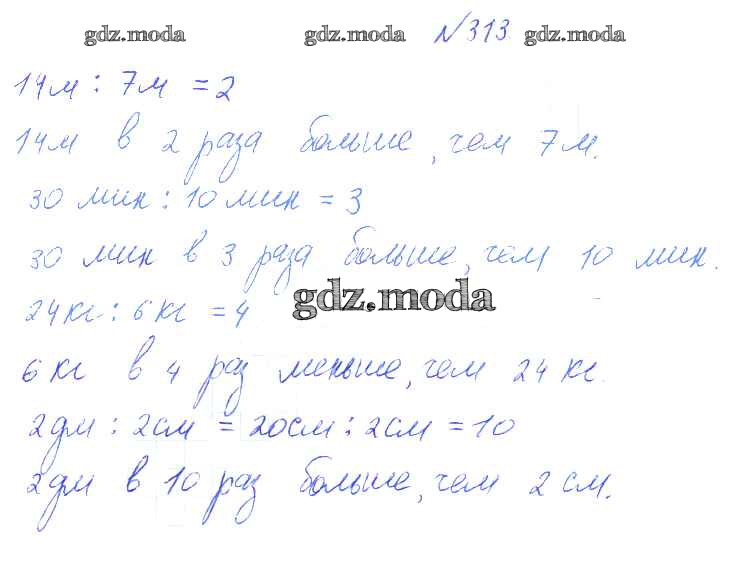 gdz.moda gdz.moda №313 gdz.moda
14м : 7м = 2
14м в 2 раза больше, чем 7м.
30 мин : 10 мин = 3
30 мин в 3 раза больше, чем 10 мин.
gdz.moda
24кг : 6кг = 4
6кг в 4 раз меньше, чем 24 кг.
2дм : 2см = 20см : 2см = 10
2дм в 10 раз больше, чем 2 см.